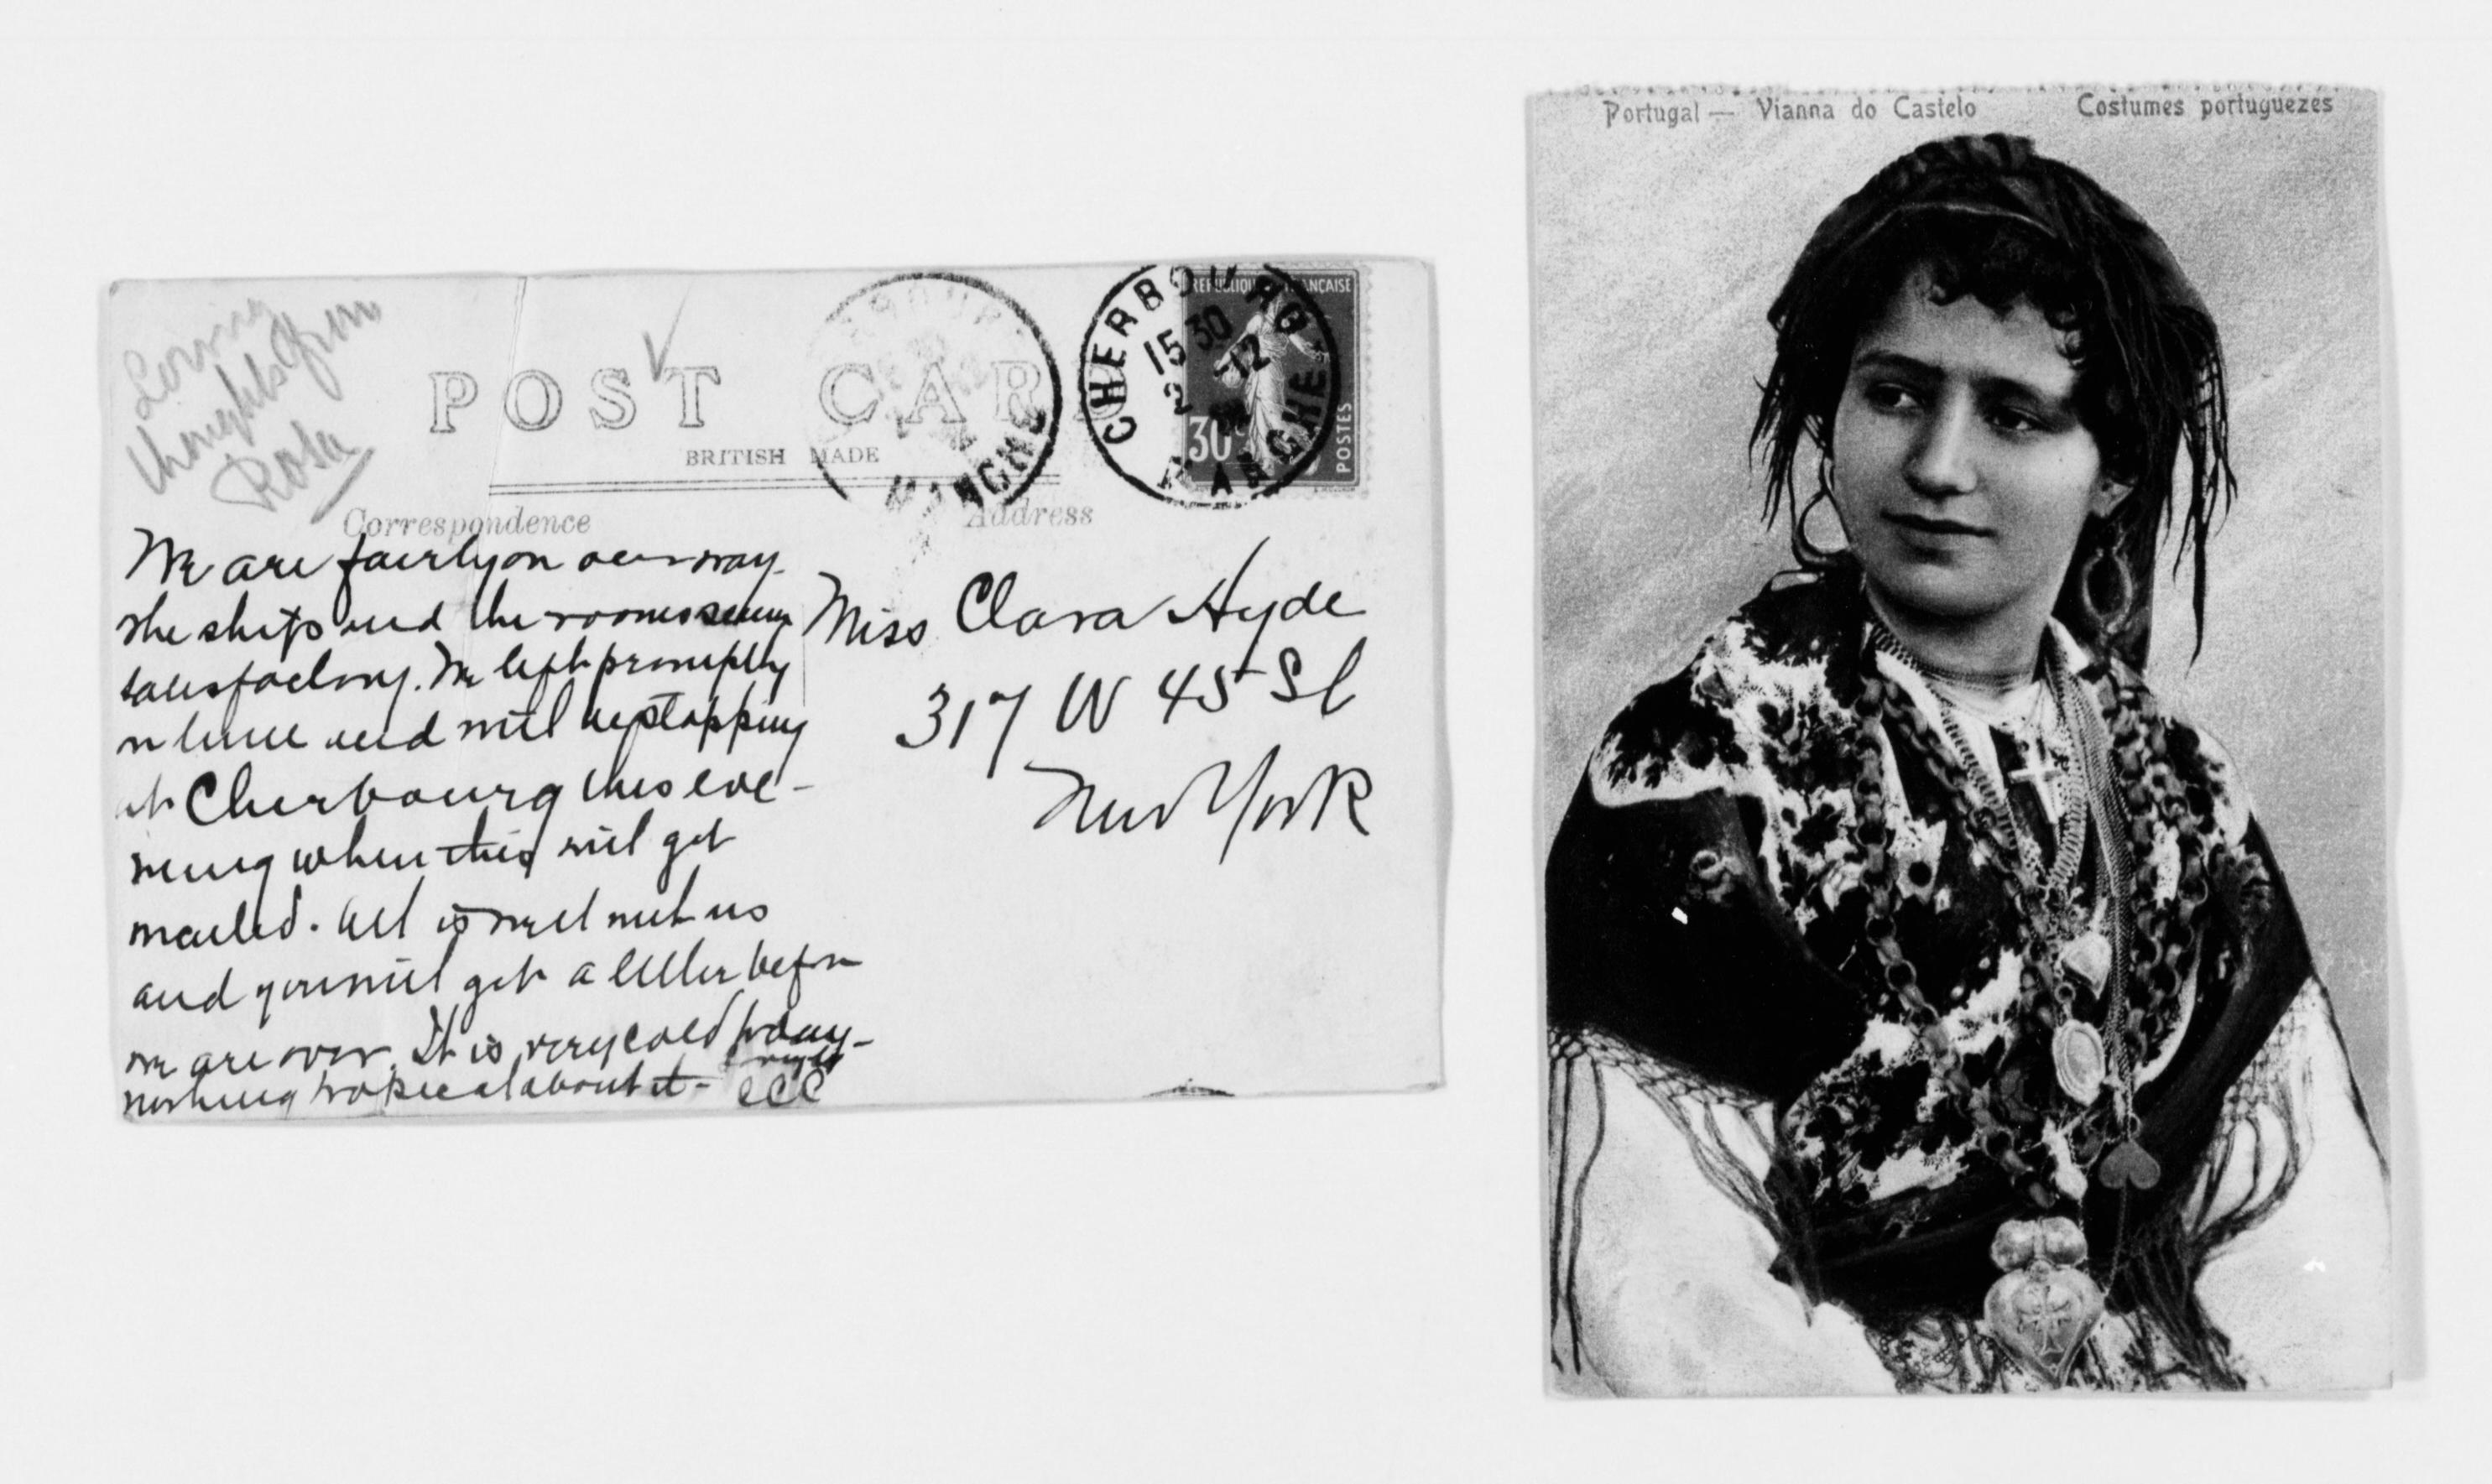 Loving
thoughts from
Rosa
POST CARD
BRITISH MADE
Correspondence
Address
CHERBOURG
15 30
2 -12
MANCHE
REPUBLIQUE FRANÇAISE
30c
POSTES
MANCHE
We are fairly on our way.
The ship and the rooms seem
satisfactory. We left promptly
and will be stopping
at Cherbourg this eve-
ning when this will get
mailed. All is well with us
and you will get a letter before
we are over. It is very cold today-
nothing tropical about it - CCC
Miss Clara Hyde
317 W 45 St
New York
Portugal — Vianna do Castelo Costumes portuguezes